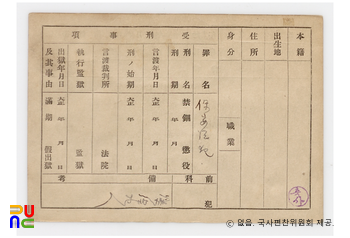 本籍
出生地
住所
身分
職業
受刑事項
罪名
保安法違犯
刑名 禁錮 懲役
刑期
言渡年月日 大正 年 月 日
刑ノ始期 大正 年 月 日
言渡裁判所 法院
執行監獄 監獄
出獄年月日 大正 年 月 日
及其事由 滿期 假出獄
前科 犯
備考
PUNC
© 없음. 국사편찬위원회 제공.